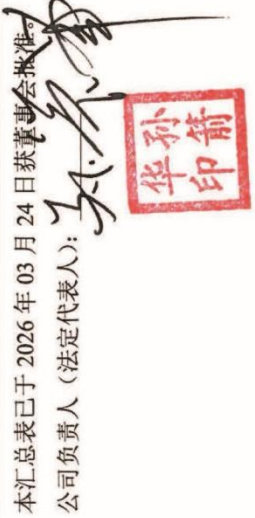 本汇总表已于 2026 年 03 月 24 日获董事会批准。
公司负责人（法定代表人）：
孙箭
华印